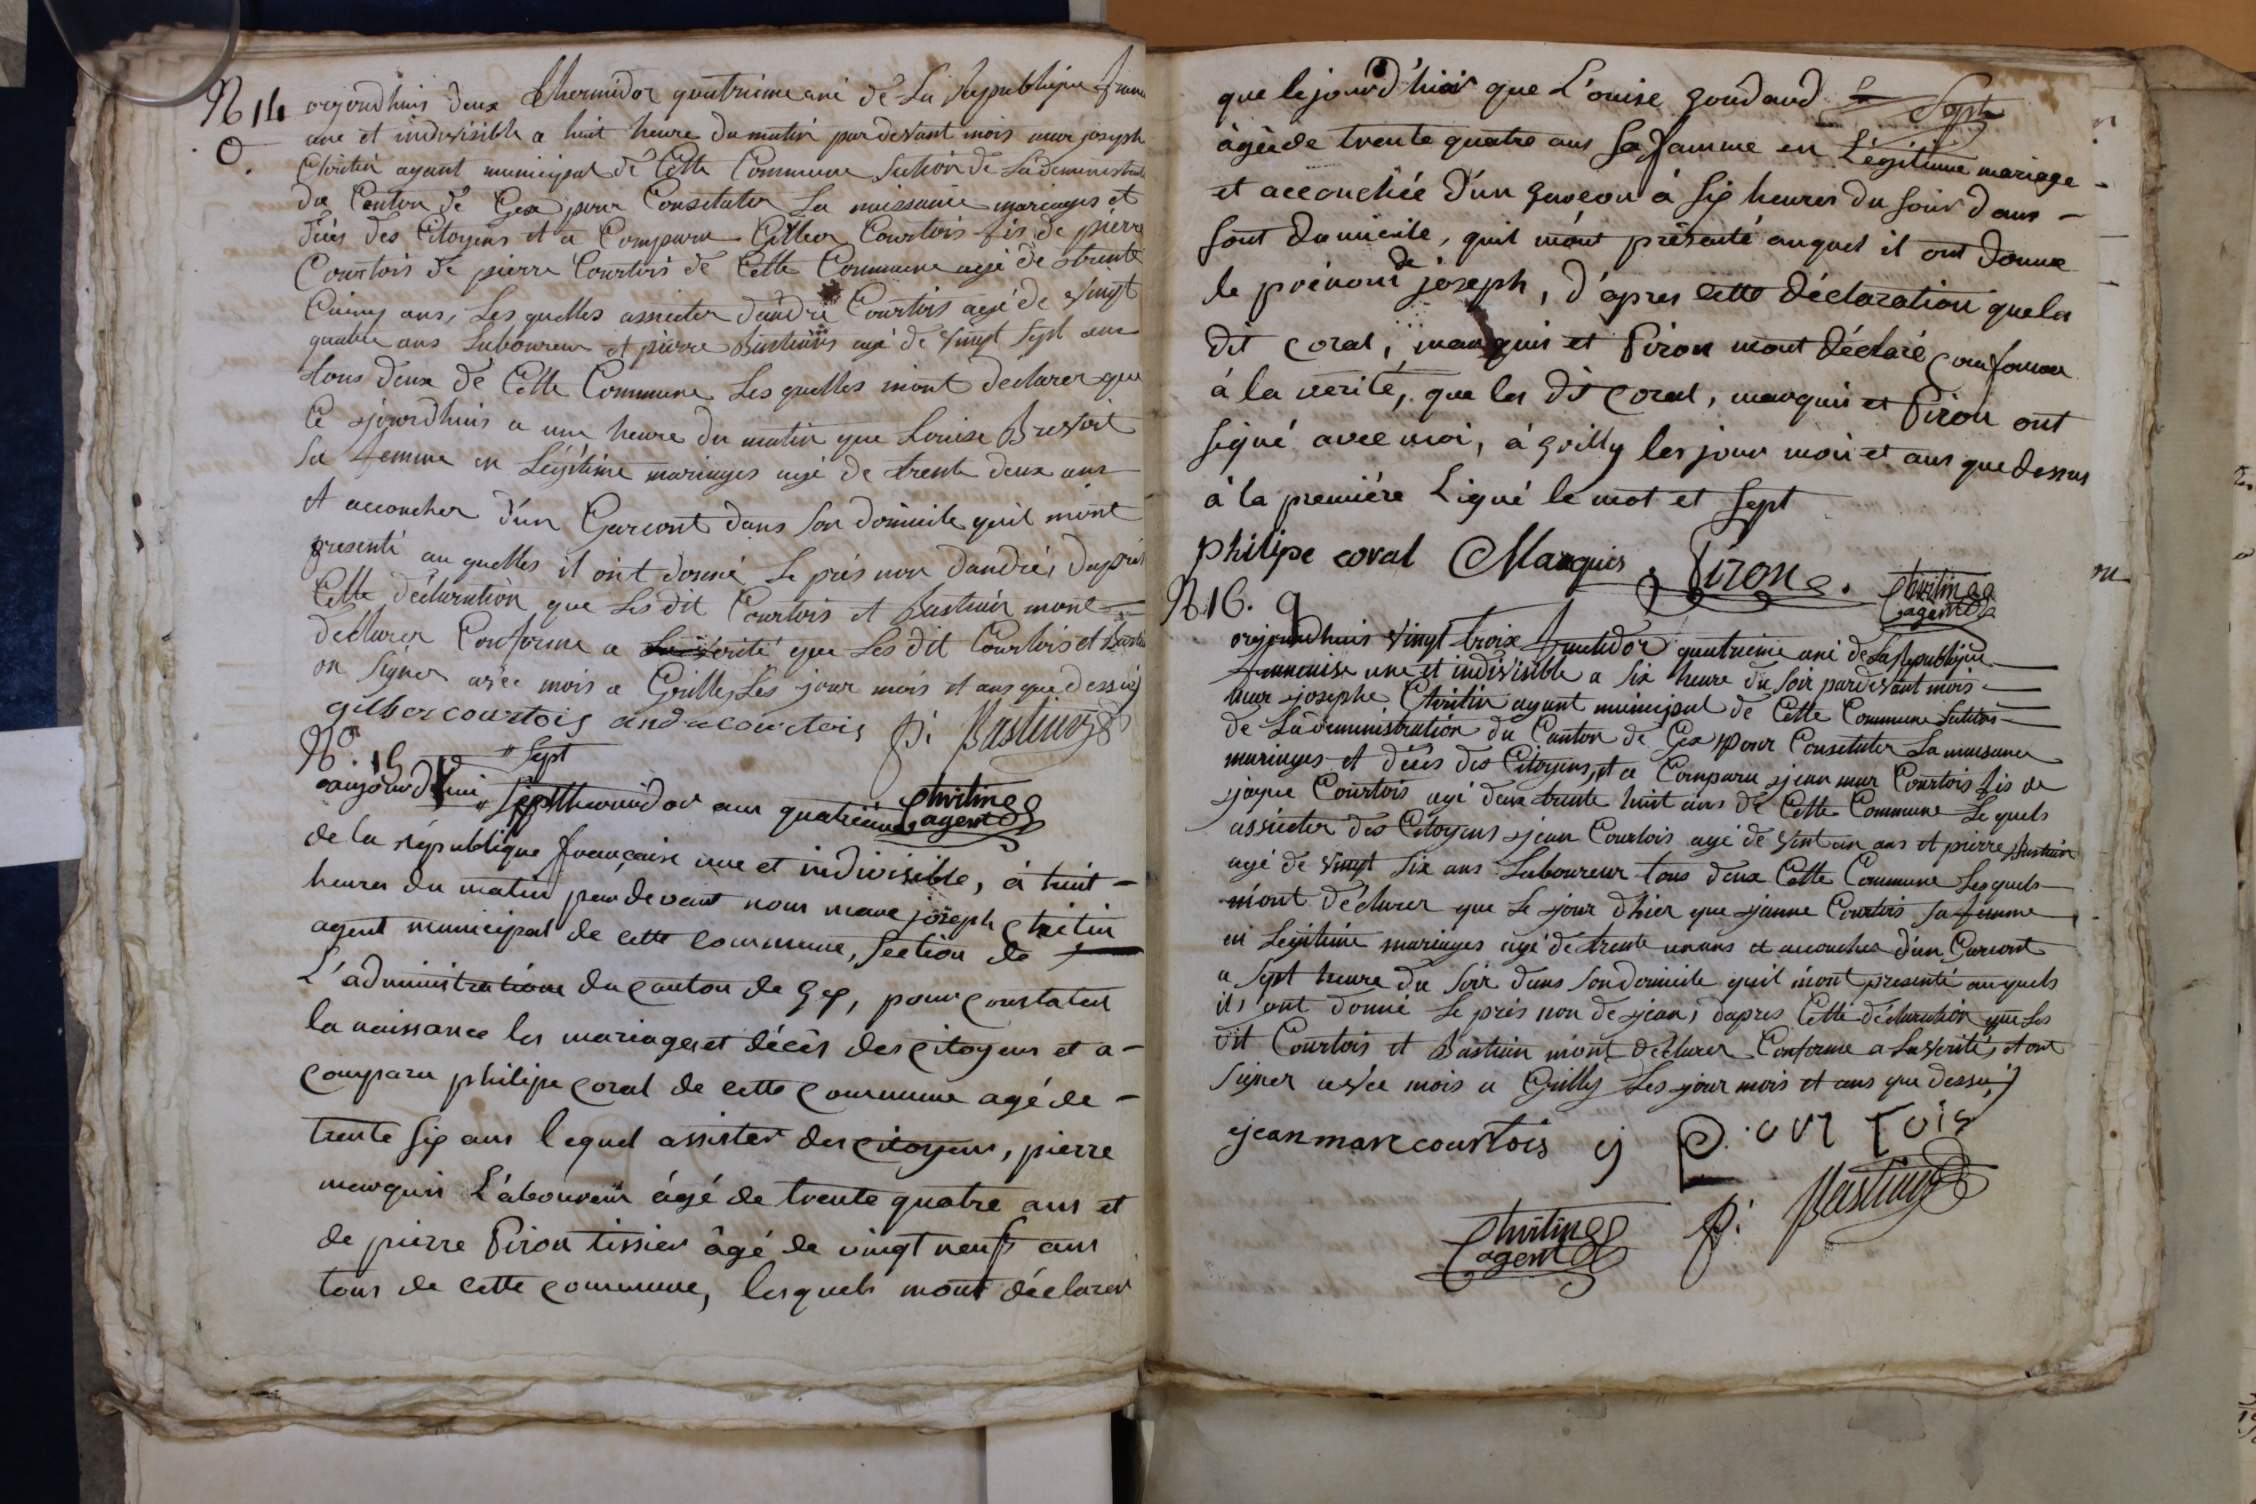 N 14 oujourdhuis deux thermidor quatrieme ané de La Republique fran
une et indivisible a huit heure du matin par devant mois marc joseph
Chritin agant municipal de Cette Commune Section de Ladeministrat
du Canton de Gex pour Consetater La naissance mariages et
déces des Citoyens et a Comparu Gilber Courtois fis de pierre
Courtois de pierre Courtois de Cette Commune agé de trente
Cainq ans, Les quelles assister dandré Courtois agé de vingt
quatre ans Laboureur et pierre Bastiain agé de vingt sept ans
tous deux de Cette Commune Les quelles mont declarer que
Ce jourdhuis a une heure du matin que Louise
sa femme en Légitime mariages agé de trente deux ans
et accoucher d'un Garcont dans son domicile quil mont
presenté au quelles il ont donné Le prés non dandré, daprés
Cette déclaration que Les dit Courtois et Bastiain mont
declarer Conforme a La vérité que Les dit Courtois et Bastia
on Signer avéc mois a Grilley Les jour mois et ans que dessus
gilber courtois andre courtois pi Bastian
Chritin
agent
N°. 15 " sept
aujourd'hui " sept thermidor ans quatrième
de la république française une et indivisible, à huit -
heures du matin par devant nous marc joseph chritin
agent municipal de cette commune, section de
L'administration du canton de Gex, pour constater
la naissance les mariages et décès des citoyens et a -
comparu philipe coral de cette commune agé de -
trente six ans lequel assister des citoyens, pierre
marquis L'aboureur âgé de trente quatre ans et
de pierre Piron tissier âgé de vingt neuf ans
tous de cette commune, lesquels mont déclarer
que lejour d'hier que L'ouise goudard Sept
âgée de trente quatre ans sa famme en Légitimme mariage -
et accouchée d'un garcon à six heures du soir dans -
sont domicile, quil mont présenté auquel il ont donné
le prénom de joseph, d'apres cette déclaration que les
dit coral, marquis et Piron mont déclaré conforme
à la verité, que les dit coral, marquis et Piron ont
signé avec moi, à grilly les jour moi et ans que dessus
à la première Ligné le mot et sept
philipe coral Marquis Piron Chritin
agent
N. 16. 9
oujourdhuis vingt troix fructidor quatrieme ané de La Republique
francaise une et indivisible a six heure du soir pardevant mois
marc josephe Chritin agant municipal de Cette Commune Section
de Ladeministration du Canton de Gex pour Consetater La naisance
mariages et déces des Citoyens, et a Comparu jean marc Courtois fis de
jaque Courtois agé deux trente huit ans de Cette Commune Le quels
assister des Citoyens jean Courtois agé de vint un ans et pierre Bastiain
agé de vingt six ans Laboureur tous deux Cette Commune Lesquels
mont déclarer que Le jour dhier que janne Courtois sa femme
en Legitime mariages agé de trente unans et accoucher d'un Garcont
a sept heure du soir dans son domicile quil mont presenté au quels
ils ont donné Le prés non de jean, dapres Cette déclaration que Les
dit Courtois et Bastiain mont déclarer Conforme a La verité, et ont
signer avéc mois a Grilly Les jour mois et ans que dessus
jean marc courtois
Chritin pi Bastian
agent